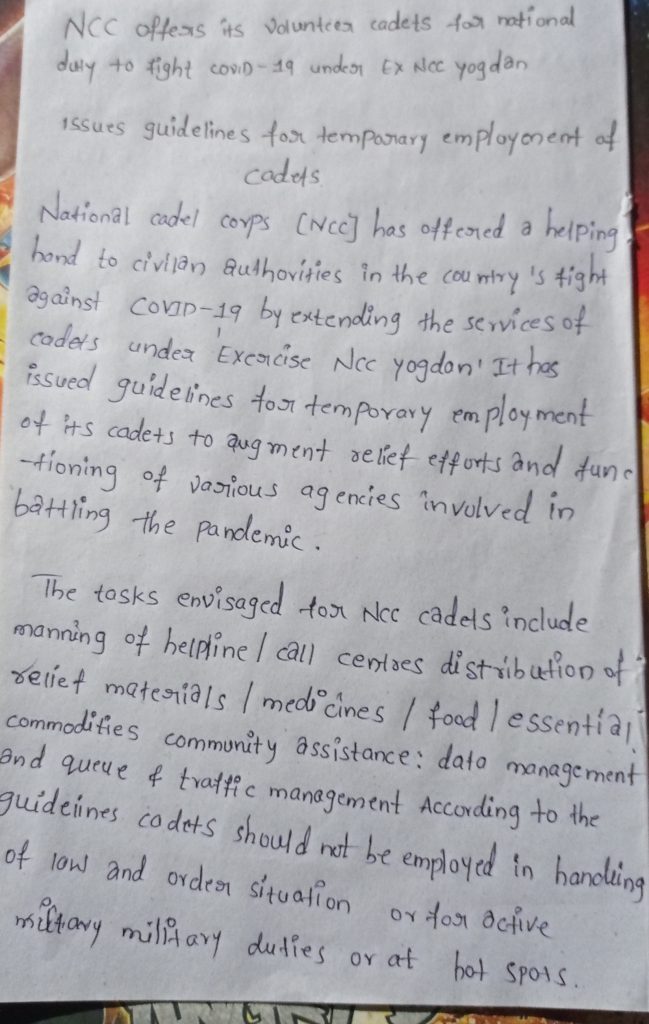 NCC offers its volunteer cadets for national
duty to fight COVID-19 under Ex NCC yogdan
issues guidelines for temporary employment of
cadets
National cadet corps [NCC] has offered a helping
hand to civilan authorities in the country's fight
against COVID-19 by extending the services of
cadets under 'Exercise NCC yogdan' It has
issued guidelines for temporary employment
of its cadets to augment relief efforts and func
-tioning of various agencies involved in
battling the pandemic.
The tasks envisaged for NCC cadets include
manning of helpline / call centres distribution of
relief materials / medicines / food / essential
commodities community assistance: data management
and queue & traffic management According to the
guidelines cadets should not be employed in handling
of low and order situation or for active
military military duties or at hot spots.